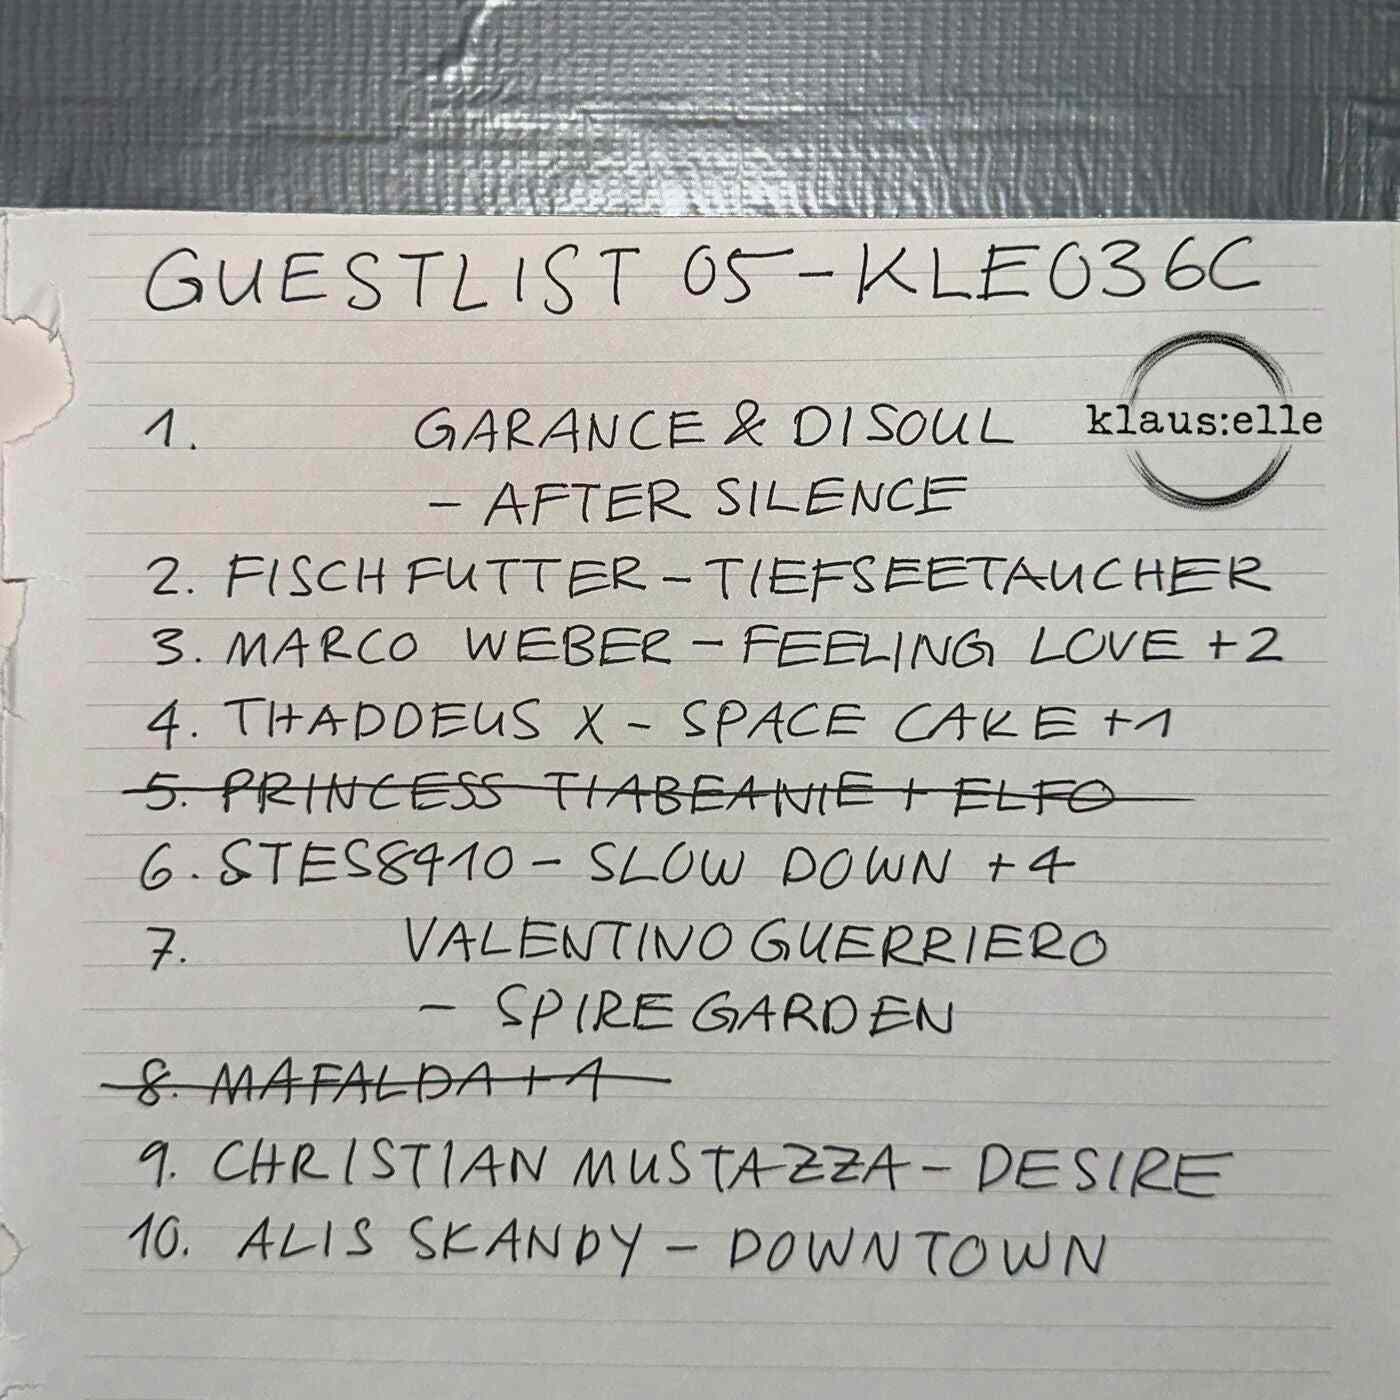 GUESTLIST 05-KLE036C
klaus:elle
1. GARANCE & DISOUL
- AFTER SILENCE
2. FISCHFUTTER - TIEFSEETAUCHER
3. MARCO WEBER - FEELING LOVE +2
4. THADDEUS X - SPACE CAKE +1
5. PRINCESS TIABEANIE + ELFO
6. STES8910 - SLOW DOWN +4
7. VALENTINO GUERRIERO
- SPIRE GARDEN
8. MAFALDA +1
9. CHRISTIAN MUSTAZZA - DESIRE
10. ALIS SKANDY - DOWNTOWN